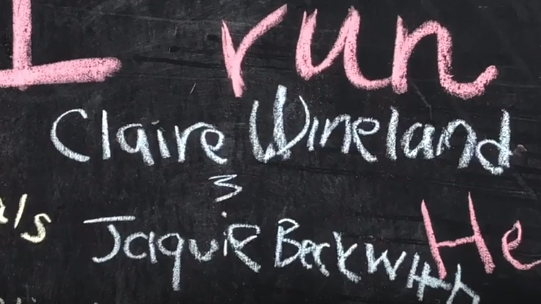 I run
Claire Wineland
&
als Jaquie Beckwith He